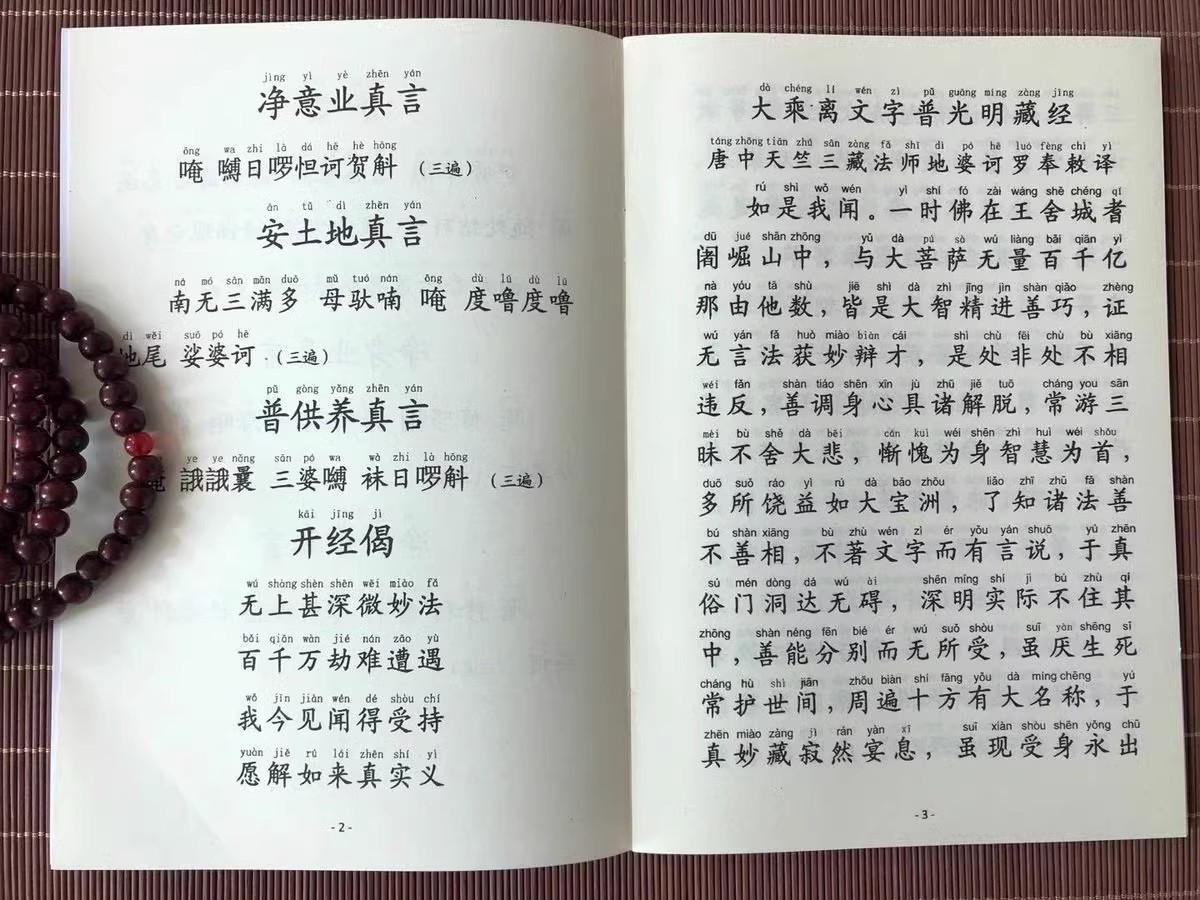 jìng yì yè zhēn yán
净意业真言
ōng wa zhi là dá hē hè hōng
唵 嚩日啰怛诃贺斛 （三遍）
ān tǔ dì zhēn yán
安土地真言
nā mó sān mǎn duō mǔ tuó nán ōng dù lú dù lū
南无三满多 母驮喃 唵 度噜度噜
dì wěi suō pó hē
地尾 娑婆诃（三遍）
pǔ gòng yǎng zhēn yán
普供养真言
ye ye nǎng sān pó wa wà zhi là hōng
唵 誐誐曩 三婆嚩 袜日啰斛 （三遍）
kāi jīng jì
开经偈
wú shàng shèn shēn wēi miào fǎ
无上甚深微妙法
bǎi qiān wàn jié nán zāo yù
百千万劫难遭遇
wǒ jīn jiàn wén dé shòu chí
我今见闻得受持
yuàn jiě rú lái zhēn shí yì
愿解如来真实义
- 2 -
dà chéng lí wén zì pǔ guāng míng zàng jīng
大乘离文字普光明藏经
táng zhōng tiān zhú sān zàng fǎ shī dì pó hē luó fèng chì yì
唐中天竺三藏法师地婆诃罗奉敕译
rú shì wǒ wén yì shí fó zài wáng shè chéng qí
如是我闻。一时佛在王舍城耆
dū jué shān zhōng yǔ dà pú sà wú liàng bǎi qiān yì
阇崛山中，与大菩萨无量百千亿
nà yóu tā shù jiē shì dà zhì jīng jìn shàn qiǎo zhèng
那由他数，皆是大智精进善巧，证
wú yán fǎ huò miào biàn cái shì chù fēi chù bù xiāng
无言法获妙辩才，是处非处不相
wéi fǎn shàn tiáo shēn xīn jù zhū jiě tuō cháng you sān
违反，善调身心具诸解脱，常游三
mèi bù shě dà bēi cán kuì wéi shēn zhì huì wéi shǒu
昧不舍大悲，惭愧为身智慧为首，
duō suǒ ráo yì rú dà bǎo zhōu liǎo zhī zhū fǎ shàn
多所饶益如大宝洲，了知诸法善
bú shàn xiāng bù zhù wén zì ér yǒu yán shuō yú zhēn
不善相，不著文字而有言说，于真
sú mén dòng dá wú ài shēn míng shí jì bú zhù qí
俗门洞达无碍，深明实际不住其
zhōng shàn néng fēn bié ér wú suǒ shòu suī yàn shēng sǐ
中，善能分别而无所受，虽厌生死
cháng hù shì jiān zhōu biàn shí fāng yǒu dà míng chēng yú
常护世间，周遍十方有大名称，于
zhēn miào zàng jì rán yàn xī suī xiàn shòu shēn yǒng chū
真妙藏寂然宴息，虽现受身永出
- 3 -